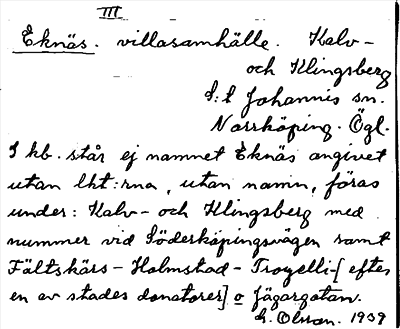 III
Eknäs. villasamhälle. Kalv-
och Klingsberg
S:t Johannis sn.
Norrköping. Ögl.
I kb. står ej namnet Eknäs angivet
utan lht:rna, utan namn, föras
under: Kalv- och Klingsberg med
nummer vid Söderköpingsvägen samt
Fältskärs- Holmstad- Trozelli-[efter
en av stades donatorer] o Jägargatan.
G. Olsson. 1939